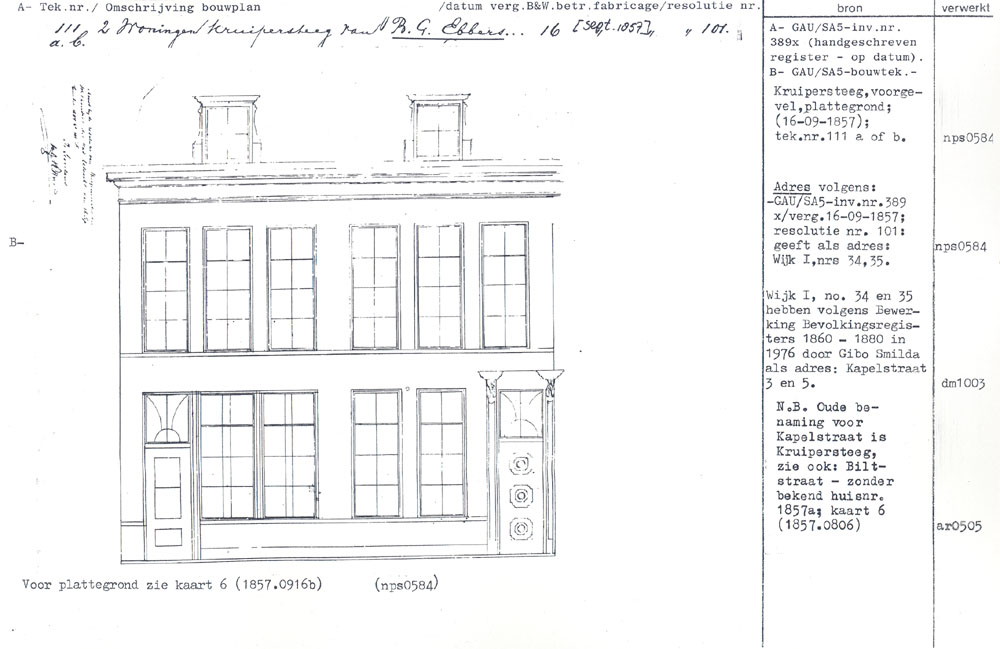 A- Tek.nr./ Omschrijving bouwplan /datum verg.B&W.betr.fabricage/resolutie nr.
111 2 Woningen Kruipersteeg van B. G. Ebbers... 16 [Sept. 1857] „ „ 101.
a. b.
B-
Voor plattegrond zie kaart 6 (1857.0916b) (nps0584)
bron verwerkt
A- GAU/SA5-inv.nr.
389x (handgeschreven
register - op datum).
B- GAU/SA5-bouwtek.-
Kruipersteeg,voorge-
vel,plattegrond;
(16-09-1857);
tek.nr.111 a of b. nps0584
Adres volgens:
-GAU/SA5-inv.nr.389
x/verg.16-09-1857;
resolutie nr. 101:
geeft als adres: nps0584
Wijk I,nrs 34,35.
Wijk I, no. 34 en 35
hebben volgens Bewer-
king Bevolkingsregis-
ters 1860 - 1880 in
1976 door Gibo Smilda
als adres: Kapelstraat
3 en 5. dm1003
N.B. Oude be-
naming voor
Kapelstraat is
Kruipersteeg,
zie ook: Bilt-
straat - zonder
bekend huisnr.
1857a; kaart 6
(1857.0806) ar0505